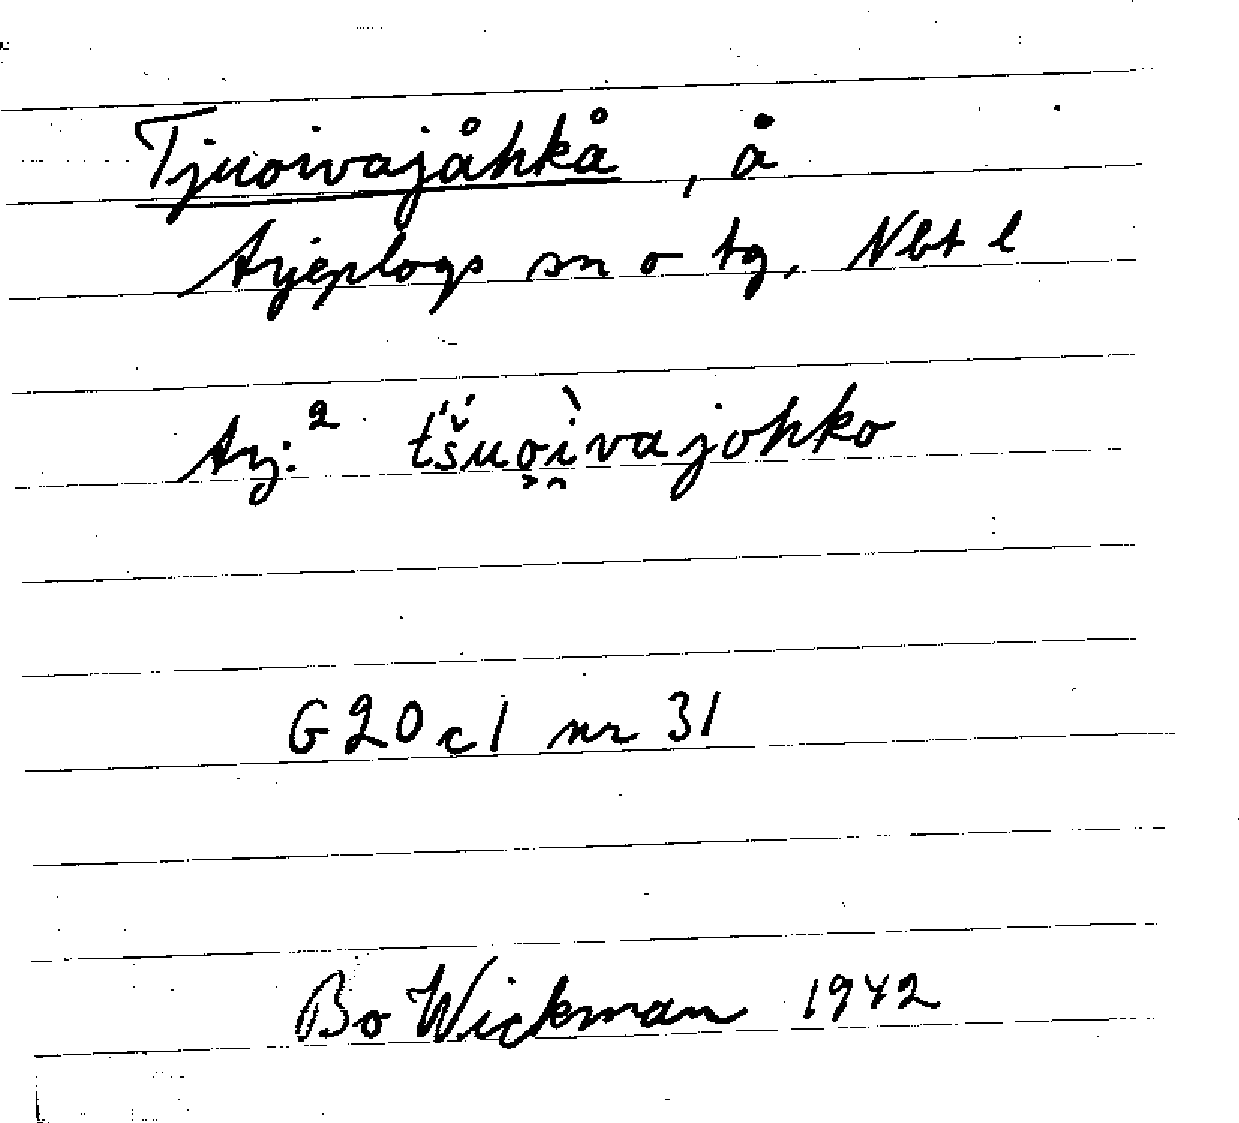 Tjuoivajåhkå, å
Arjeplogs sn o tg, Nbt l
Arj.² t́š́uo̭ì̮vajohko
G20c1 nr 31
Bo Wickman 1942